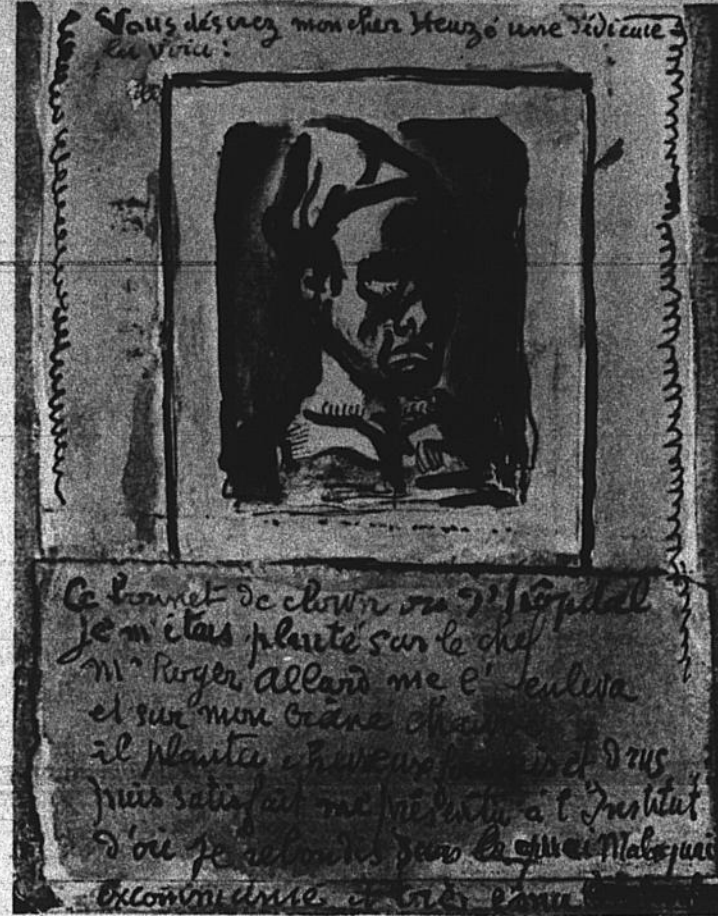 Vous désirez mon cher Heuzé une dédicace
la voici :
Ce bonnet de clown ou d'hôpital
je m'étais planté sur le chef
Mr Roger Allard me l'enleva
et sur mon crâne
il planta cheveux et drus
puis satisfait me présenta à l'Institut
d'où je rebondis dans le quai Malaquais
excommunié et très ému